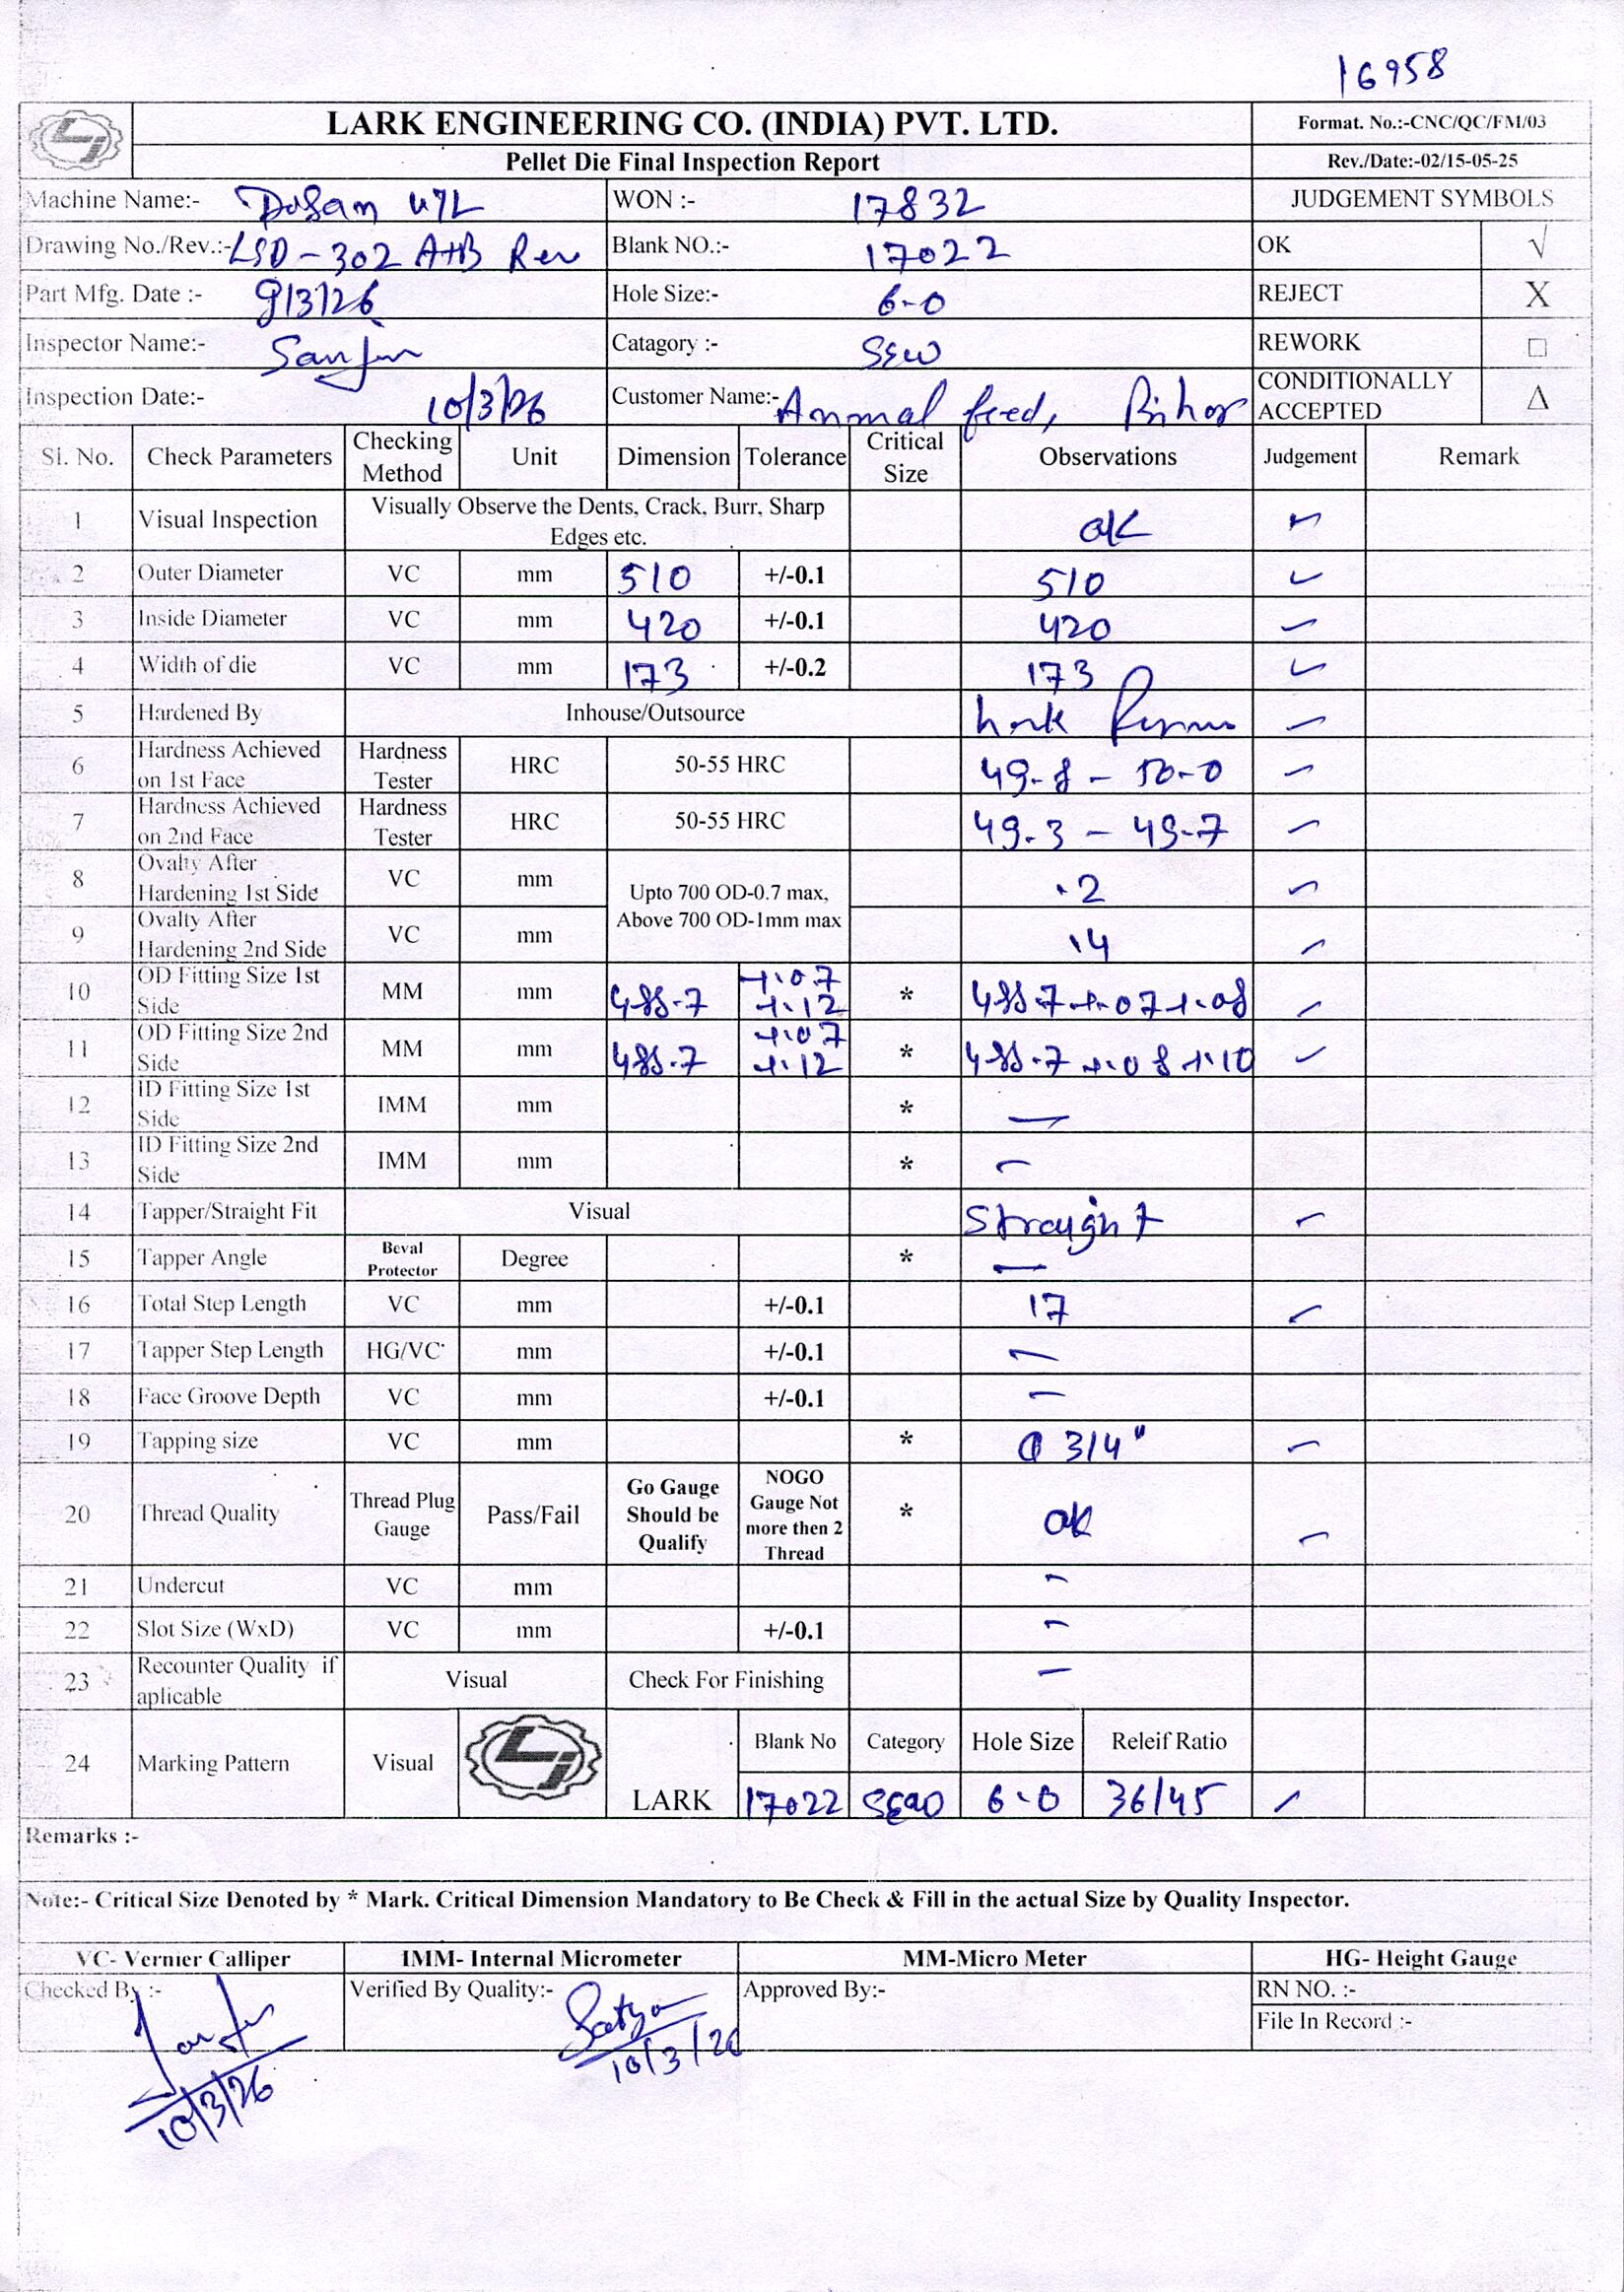 16958
LARK ENGINEERING CO. (INDIA) PVT. LTD. Format. No.:-CNC/QC/FM/03
Pellet Die Final Inspection Report Rev./Date:-02/15-05-25
Machine Name:- Dosan WON :- 17832 JUDGEMENT SYMBOLS
Drawing No./Rev.:- LSD-302 A+B Rev Blank NO.:- 17022 OK √
Part Mfg. Date :- 9/3/26 Hole Size:- 6-0 REJECT X
Inspector Name:- Catagory :- REWORK □
Inspection Date:- 10/3/26 Customer Name:- Anmal feed, CONDITIONALLY ACCEPTED Δ
Sl. No. Check Parameters Checking Method Unit Dimension Tolerance Critical Size Observations Judgement Remark
1 Visual Inspection Visually Observe the Dents, Crack, Burr, Sharp Edges etc. ok
2 Outer Diameter VC mm 510 +/-0.1 510
3 Inside Diameter VC mm 420 +/-0.1 420
4 Width of die VC mm 173 +/-0.2 173
5 Hardened By Inhouse/Outsource
6 Hardness Achieved on 1st Face Hardness Tester HRC 50-55 HRC 49-8 - 50-0
7 Hardness Achieved on 2nd Face Hardness Tester HRC 50-55 HRC 49.3 - 49-7
8 Ovalty After Hardening 1st Side VC mm Upto 700 OD-0.7 max, Above 700 OD-1mm max .2
9 Ovalty After Hardening 2nd Side VC mm .4
10 OD Fitting Size 1st Side MM mm +.07 +.12 * +.07 +.08
11 OD Fitting Size 2nd Side MM mm +.07 +.12 * +.08 +.10
12 ID Fitting Size 1st Side IMM mm * —
13 ID Fitting Size 2nd Side IMM mm * —
14 Tapper/Straight Fit Visual Straight
15 Tapper Angle Beval Protector Degree * —
16 Total Step Length VC mm +/-0.1 17
17 Tapper Step Length HG/VC mm +/-0.1 —
18 Face Groove Depth VC mm +/-0.1 —
19 Tapping size VC mm * 3/4"
20 Thread Quality Thread Plug Gauge Pass/Fail Go Gauge Should be Qualify NOGO Gauge Not more then 2 Thread * ok
21 Undercut VC mm —
22 Slot Size (WxD) VC mm +/-0.1 —
23 Recounter Quality if aplicable Visual Check For Finishing —
24 Marking Pattern Visual LARK Blank No Category Hole Size Releif Ratio
17022 6.0 36/45
Remarks :-
Note:- Critical Size Denoted by * Mark. Critical Dimension Mandatory to Be Check & Fill in the actual Size by Quality Inspector.
VC- Vernier Calliper IMM- Internal Micrometer MM-Micro Meter HG- Height Gauge
Checked By :- Verified By Quality:- Satya Approved By:- RN NO. :-
File In Record :-
10/3/26 10/3/26